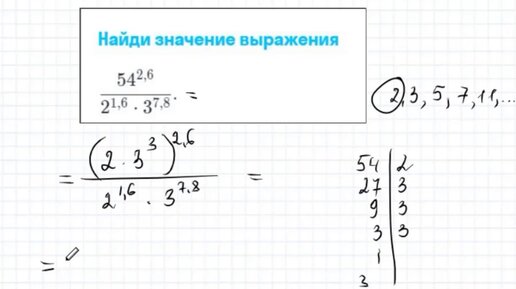 Найди значение выражения
54^{2,6} / (2^{1,6} · 3^{7,8}) . =
2, 3, 5, 7, 11, ...
= (2 · 3^3)^{2,6} / (2^{1,6} · 3^{7,8}) =
54 | 2
27 | 3
9 | 3
3 | 3
1 |
=
3